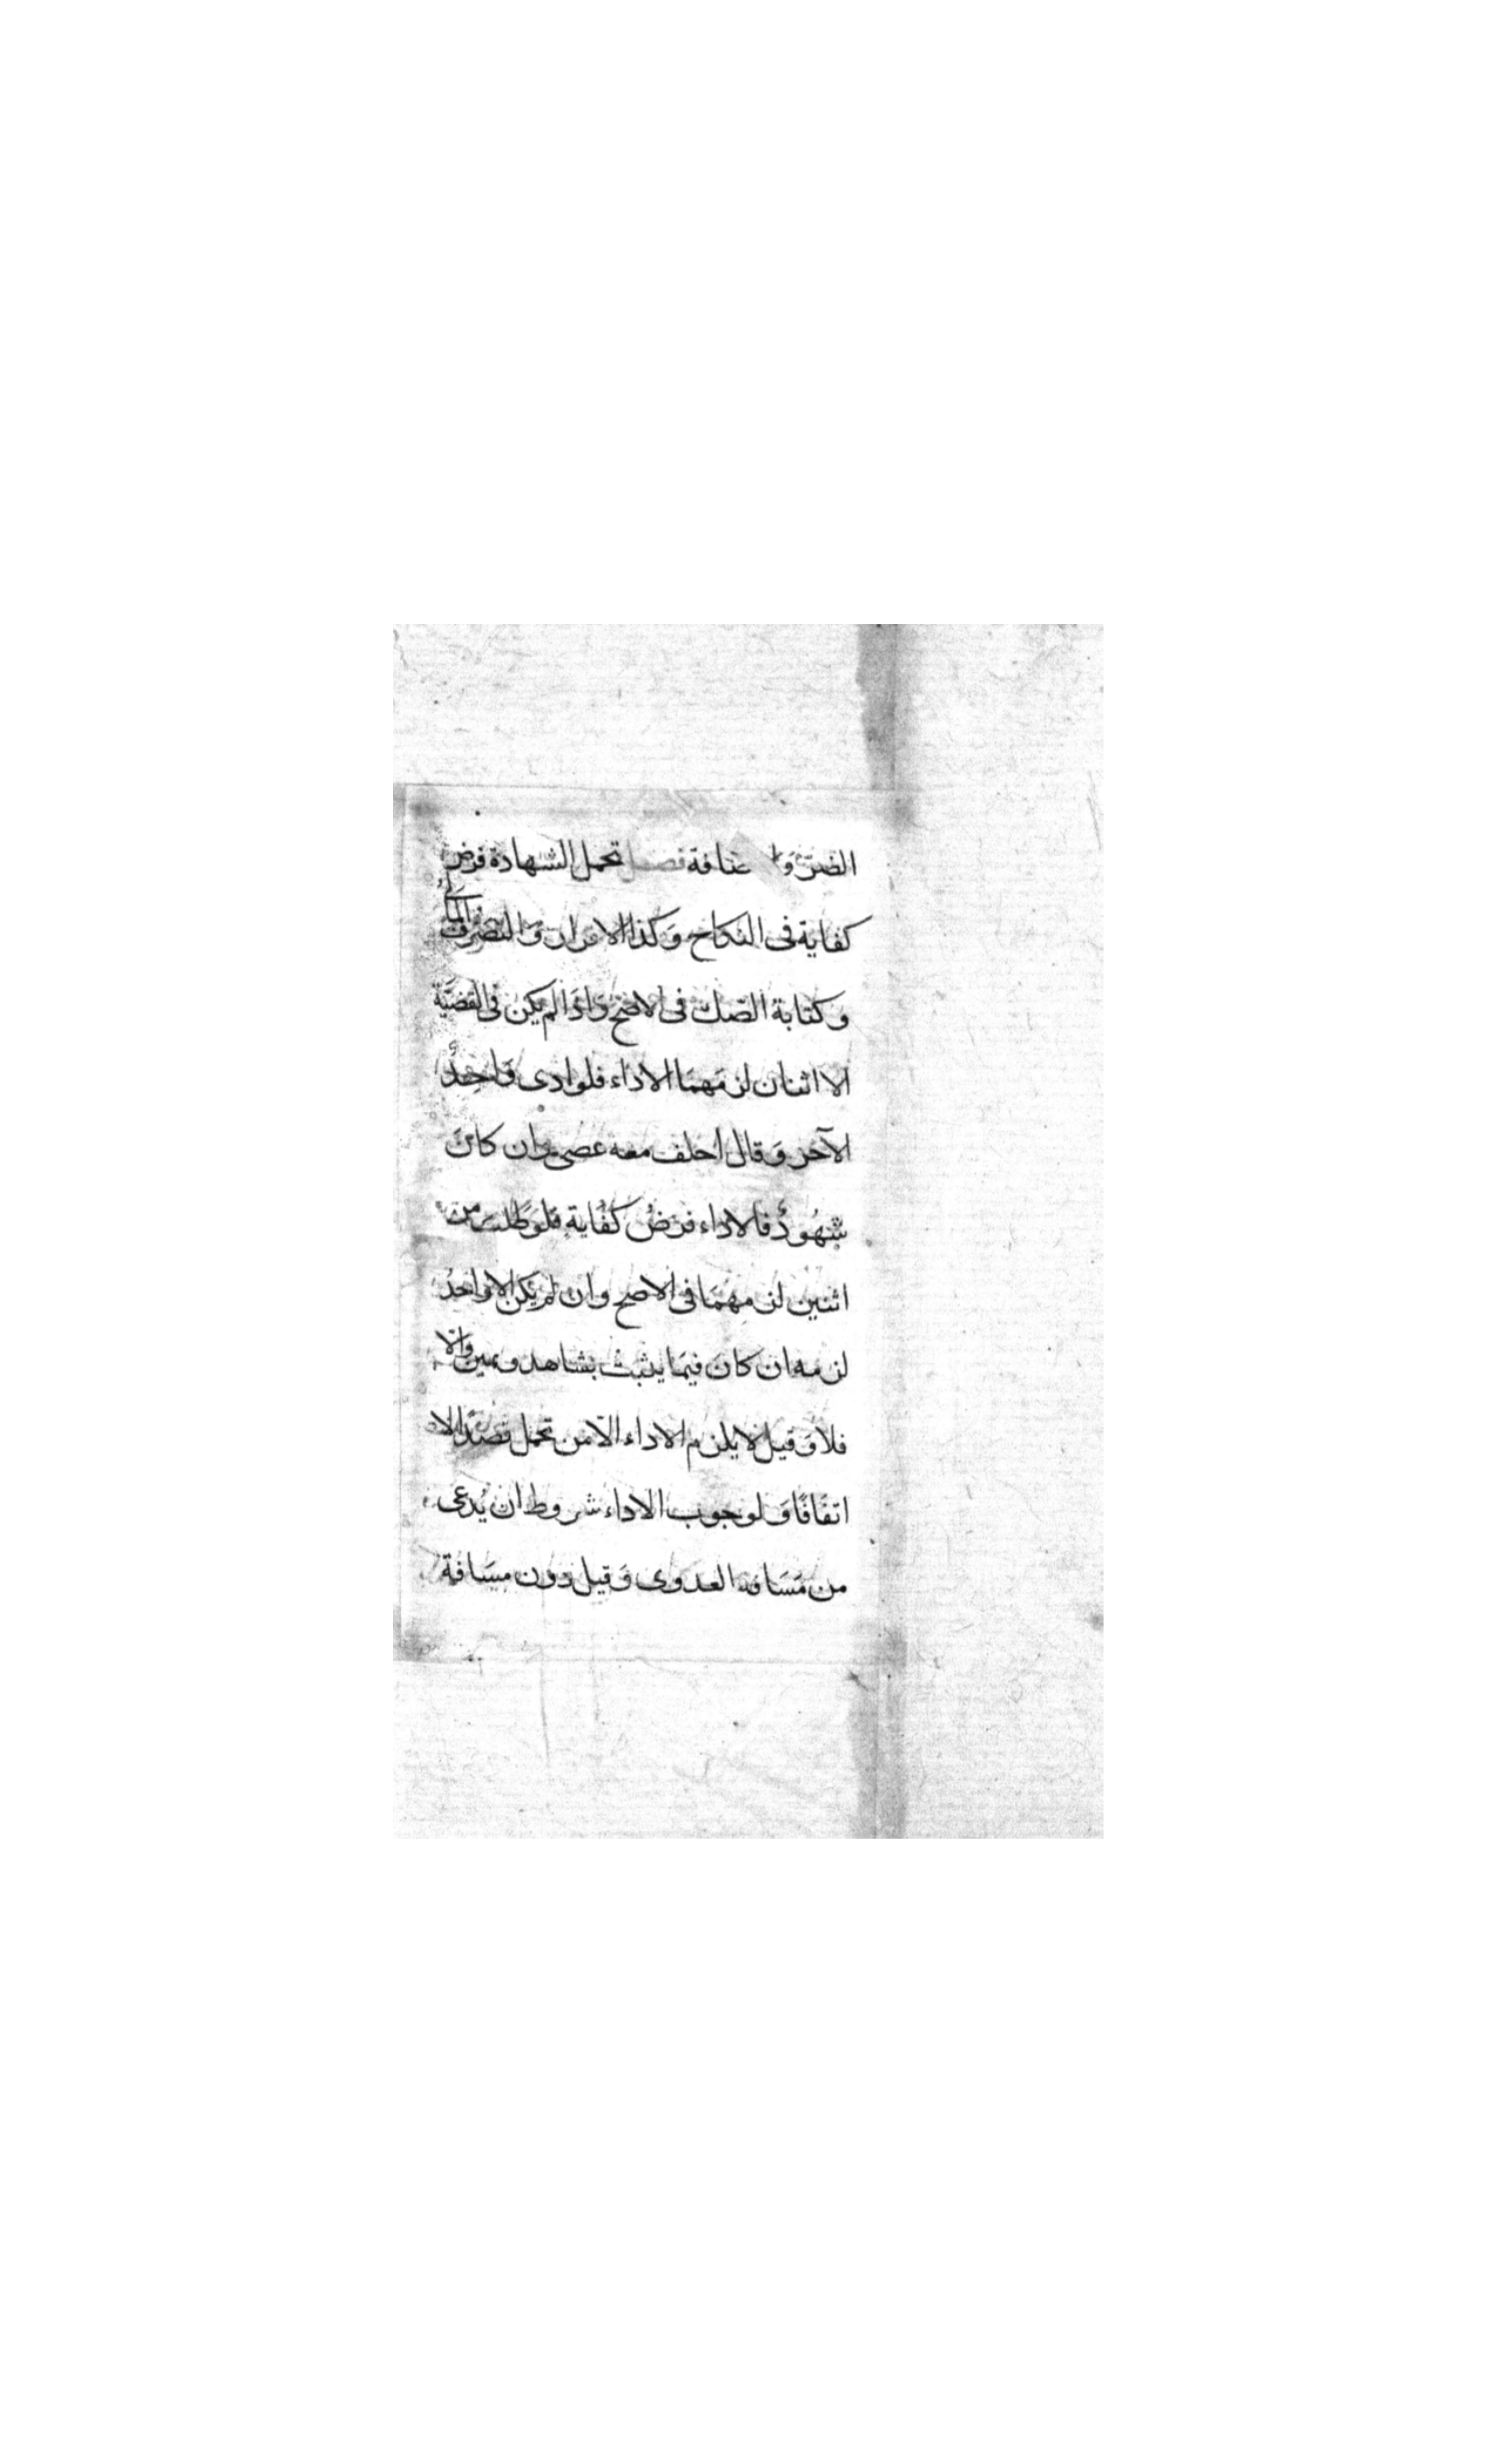 الضرّ وَا عنافة فصل تحمل الشهادة فرض
كفاية فى النكاح وَكذا الاقرار وَالتصَرّف المالىُّ
وكتابة الصّك فى الاصح وَاذا لم يكن فى القضيّة
الا اثنان لزمَهمَا الاداء فلو ادى وَاحدٌ
الآخر وَقال احلف معه عصى وان كانَ
شهُودٌ فالاداء فرضُ كفُاية فلَو طُلبَ من
اثنين لزمهمَا فى الاصح وان لم يكن الا واحدٌ
لزمه ان كانَ فيمَا يثبتُ بشاهد ويمين وَالّا
فلا وَقيل لا يلزم الاداء الّا من تحمل قصْدًا لا
اتفَاقًا وَلوجوب الاداء شروط ان يُدعى
من مَسَافة العدوى وَقيل دون مسَافة